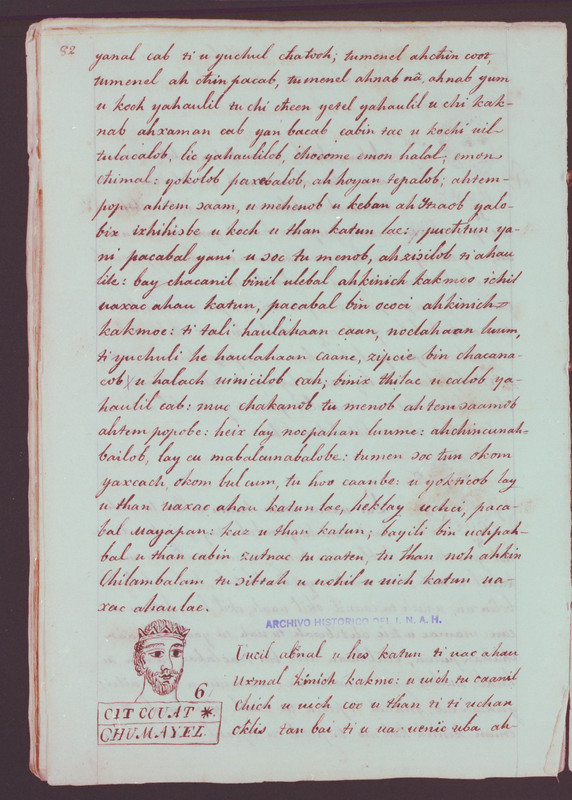 82
yanal cab ti u yuchul chatooh; tumenel ahchin coot,
tumenel ah chin pacab, tumenel ahnab na, ahnab yum
u koch yahaulil tu chi chcen yetel yahaulil u chi kak-
nab ahxaman cab yan bacab cabin tac u kochi uil
tulacalob, lic yahaulilob, chocome emon halal, emon
chimal: yokolob paxebalob, ah hoyan tepalob; ahtem-
pop ahtem saam, u mehenob u keban ah Itzaob yalo-
bix ixhihisbe u koch u than katun lae: yuchtun ya-
ni pacabal yani u soc tu menob, ahxixilob ti ahau
lile: bay chacanil binil ulebal ahkinich kakmoo ichil
uaxac ahau katun, pacabal bin ococi ahkinich
kakmoe: ti tali haulahaan caan, noclahaan luum,
ti yuchuli he haulahaan caane, zipcie bin chacana-
cob u halach uinicilob cah; binix thilac u calob ya-
haulil cab: muc chakanob tu menob ah tem saamob
ahtem popobe: heix lay nocpahan luume: ahchincunah-
bailob, lay cu mabalcunabalobe: tumen soc tun okom
yaxcach, okom bul cum, tu hoo caanbe: u yokticob lay
u than uaxac ahau katun lae, heklay uchci, paca-
bal Mayapan: kaz u than katun; bayili bin uchpah-
bal u than cabin zutnac tu caaten, tu than noh ahkin
Chilambalam tu sibtah u uchil u uich katun ua-
xac ahaulae.
ARCHIVO HISTORICO DEL I. N. A. H.
Uucil abnal u heo katun ti uac ahau
Uxmal kinich kakmo: u uich tu caanil
Chich u uich coc u than ti ti uchan
cklis tan bai ti u uar uenic uba ah
6
CIT COUAT *.
CHUMAYEL.